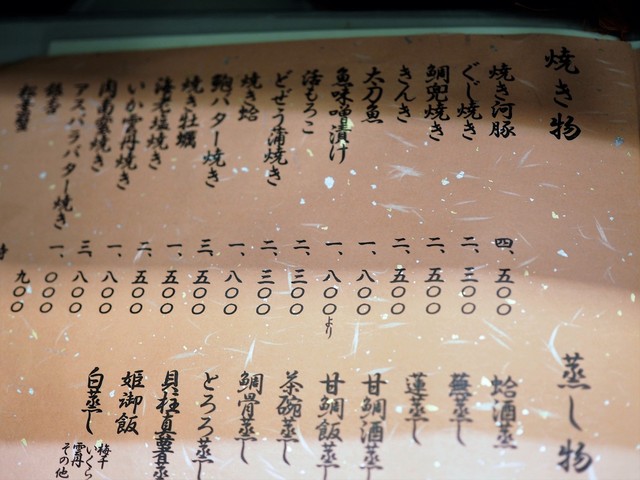 焼き物
焼き河豚 四、五〇〇
ぐじ焼き 二、三〇〇
鯛兜焼き 二、五〇〇
きんき 二、五〇〇
太刀魚 一、八〇〇
魚味噌漬け 一、八〇〇より
活もろこ 二、三〇〇
どぜう蒲焼き 二、三〇〇
焼き蛤 一、八〇〇
鮑バター焼き 三、五〇〇
焼き牡蠣 一、五〇〇
海老塩焼き 二、五〇〇
いか雲丹焼き 一、八〇〇
肉南蛮焼き 三、八〇〇
アスパラバター焼き 一、〇〇〇
銀杏 九〇〇
時
蒸し物
蛤酒蒸し
蕪蒸し
蓮蒸し
甘鯛酒蒸し
甘鯛飯蒸し
茶碗蒸し
鯛骨蒸し
とろろ蒸し
貝柱真薯蒸し
姫御飯
白蒸し
梅干
いくら
雲丹
その他